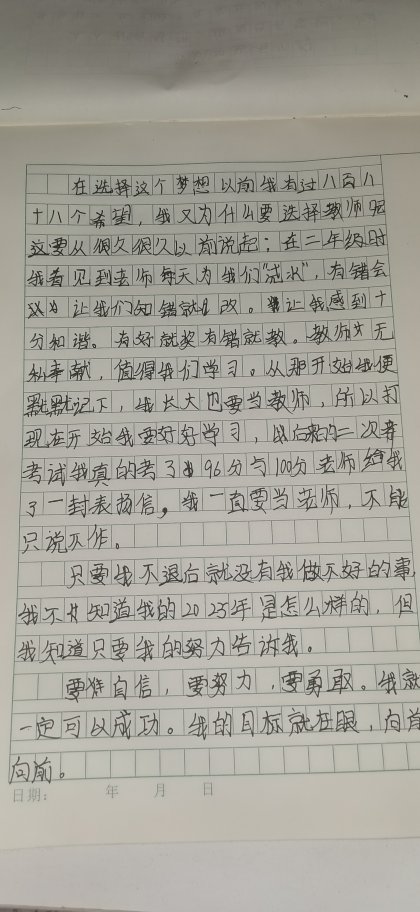 在选择这个梦想以前我有过八百八
十八个希望，我又为什么要选择教师呢
这要从很久很久以前说起；在二年级时
我看见到老师每天为我们“浇水”，有错会
让我们知错就改。让我感到十
分和谐。有好就奖有错就教。教师无
私奉献，值得我们学习。从那开始我便
默默记下，我长大也要当教师，所以打
现在开始我要好好学习，以后来的二次考
考试我真的考了96分与100分老师给我
了一封表扬信。我一直要当老师，不能
只说不作。
只要我不退后就没有我做不好的事，
我不知道我的2025年是怎么样的，但
我知道只要我的努力告诉我。
要自信，要努力，要勇敢。我就
一定可以成功。我的目标就在眼，向首
向前。
日期： 年 月 日